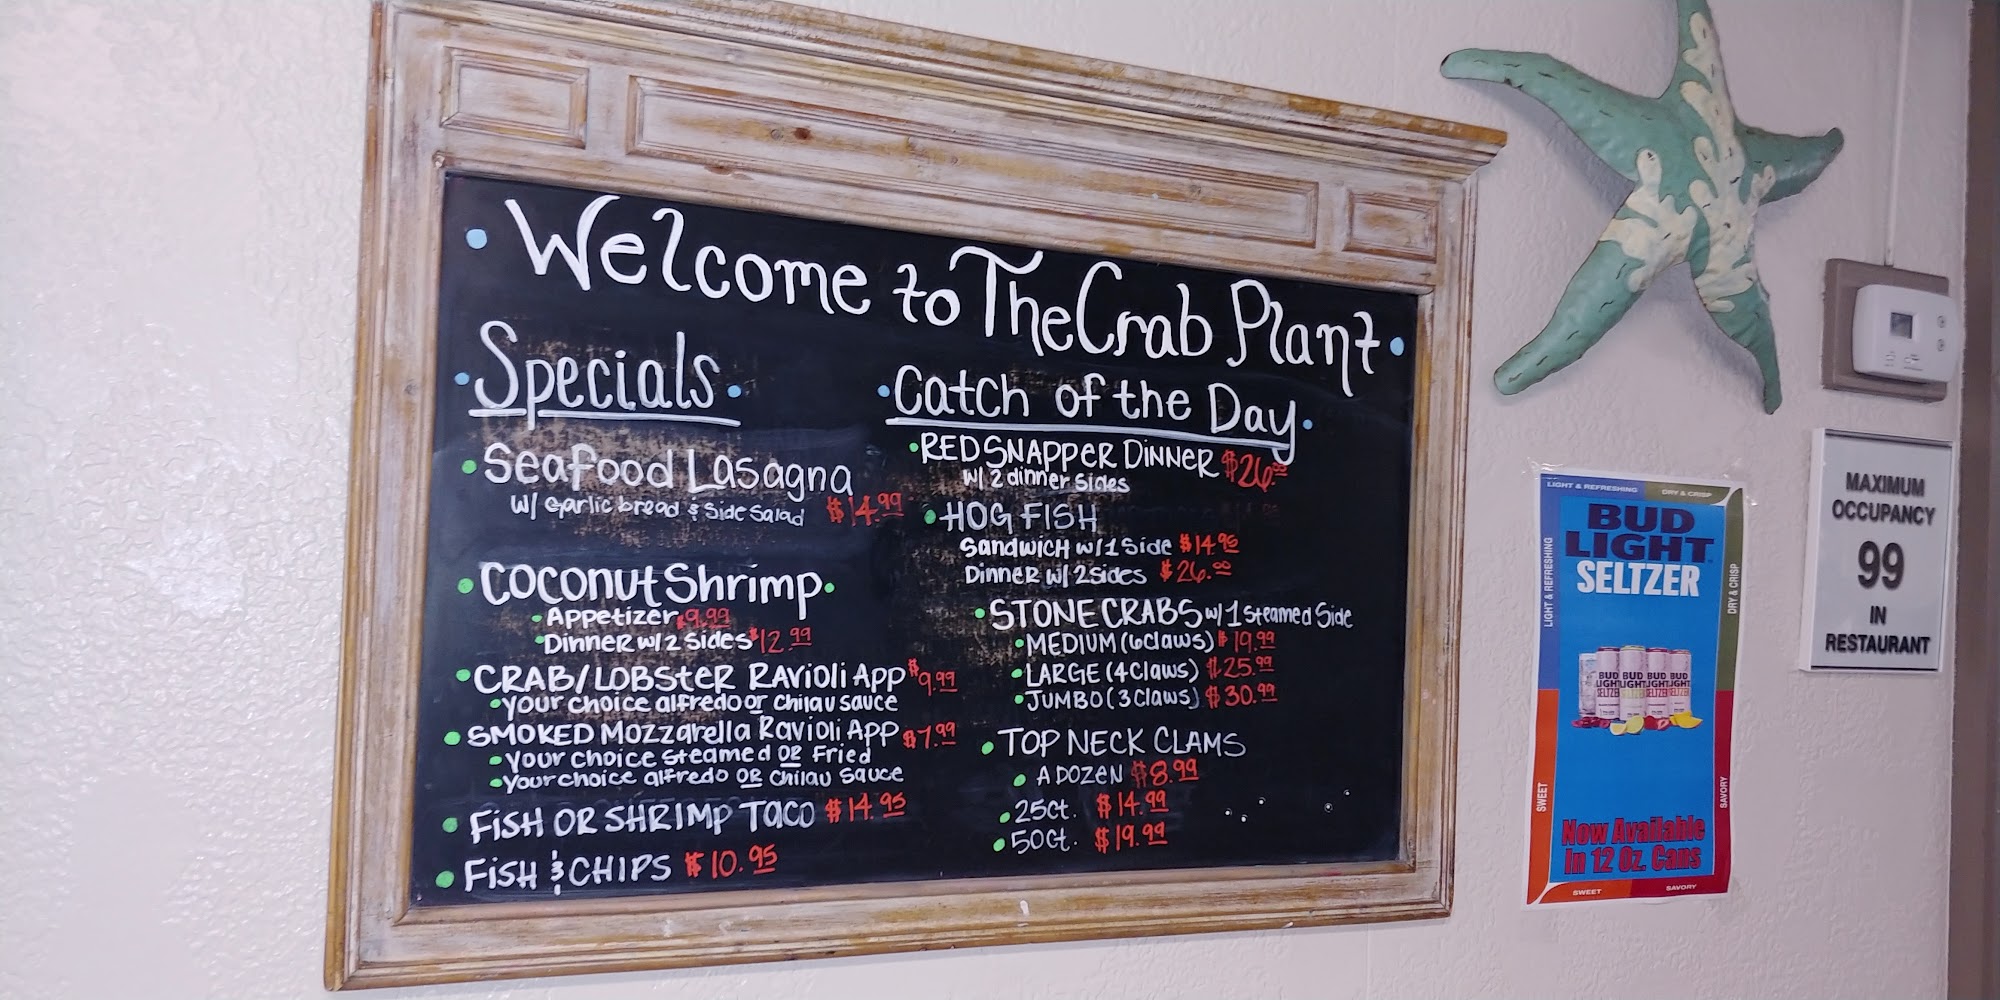 Welcome to The Crab Plant
Specials
Seafood Lasagna
w/ garlic bread & side salad $14.99
Coconut Shrimp
Appetizer $9.99
Dinner w/ 2 sides $12.99
CRAB/LOBSTER Ravioli App $9.99
your choice alfredo or chilau sauce
SMOKED Mozzarella Ravioli App $7.99
your choice steamed OR Fried
your choice alfredo OR chilau sauce
FISH OR SHRIMP TACO $14.95
FISH & CHIPS $10.95
Catch of the Day
RED SNAPPER DINNER $26.00
w/ 2 dinner sides
HOG FISH
Sandwich w/ 1 Side $14.95
Dinner w/ 2 sides $26.00
STONE CRABS w/ 1 steamed Side
MEDIUM (6 claws) $19.99
LARGE (4 claws) $25.99
JUMBO (3 claws) $30.99
TOP NECK CLAMS
A DOZEN $8.99
25ct. $14.99
50ct. $19.99
LIGHT & REFRESHING DRY & CRISP
LIGHT & REFRESHING
DRY & CRISP
BUD
LIGHT
SELTZER
BUD LIGHT SELTZER
BUD LIGHT SELTZER
BUD LIGHT SELTZER
BUD LIGHT SELTZER
SWEET
SAVORY
Now Available
In 12 Oz. Cans
SWEET SAVORY
MAXIMUM
OCCUPANCY
99
IN
RESTAURANT